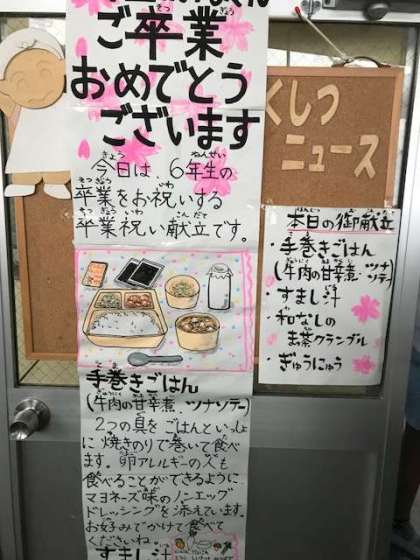 ご卒業
おめでとう
ございます
今日は、6年生の
卒業をお祝いする
卒業祝い献立です。
手巻きごはん
(牛肉の甘辛煮・ツナソテー)
2つの具をごはんといっしょ
に焼きのりで巻いて食べ
ます。卵アレルギーの人も
食べることができるように
マヨネーズ味のノンエッグ
ドレッシングを添えています。
お好みでかけて食べて
くださいね。
すまし汁
くしつ
ニュース
本日の御献立
・手巻きごはん
(牛肉の甘辛煮・ツナ
ソテー)
・すまし汁
・和なしの
お茶クランブル
・ぎゅうにゅう